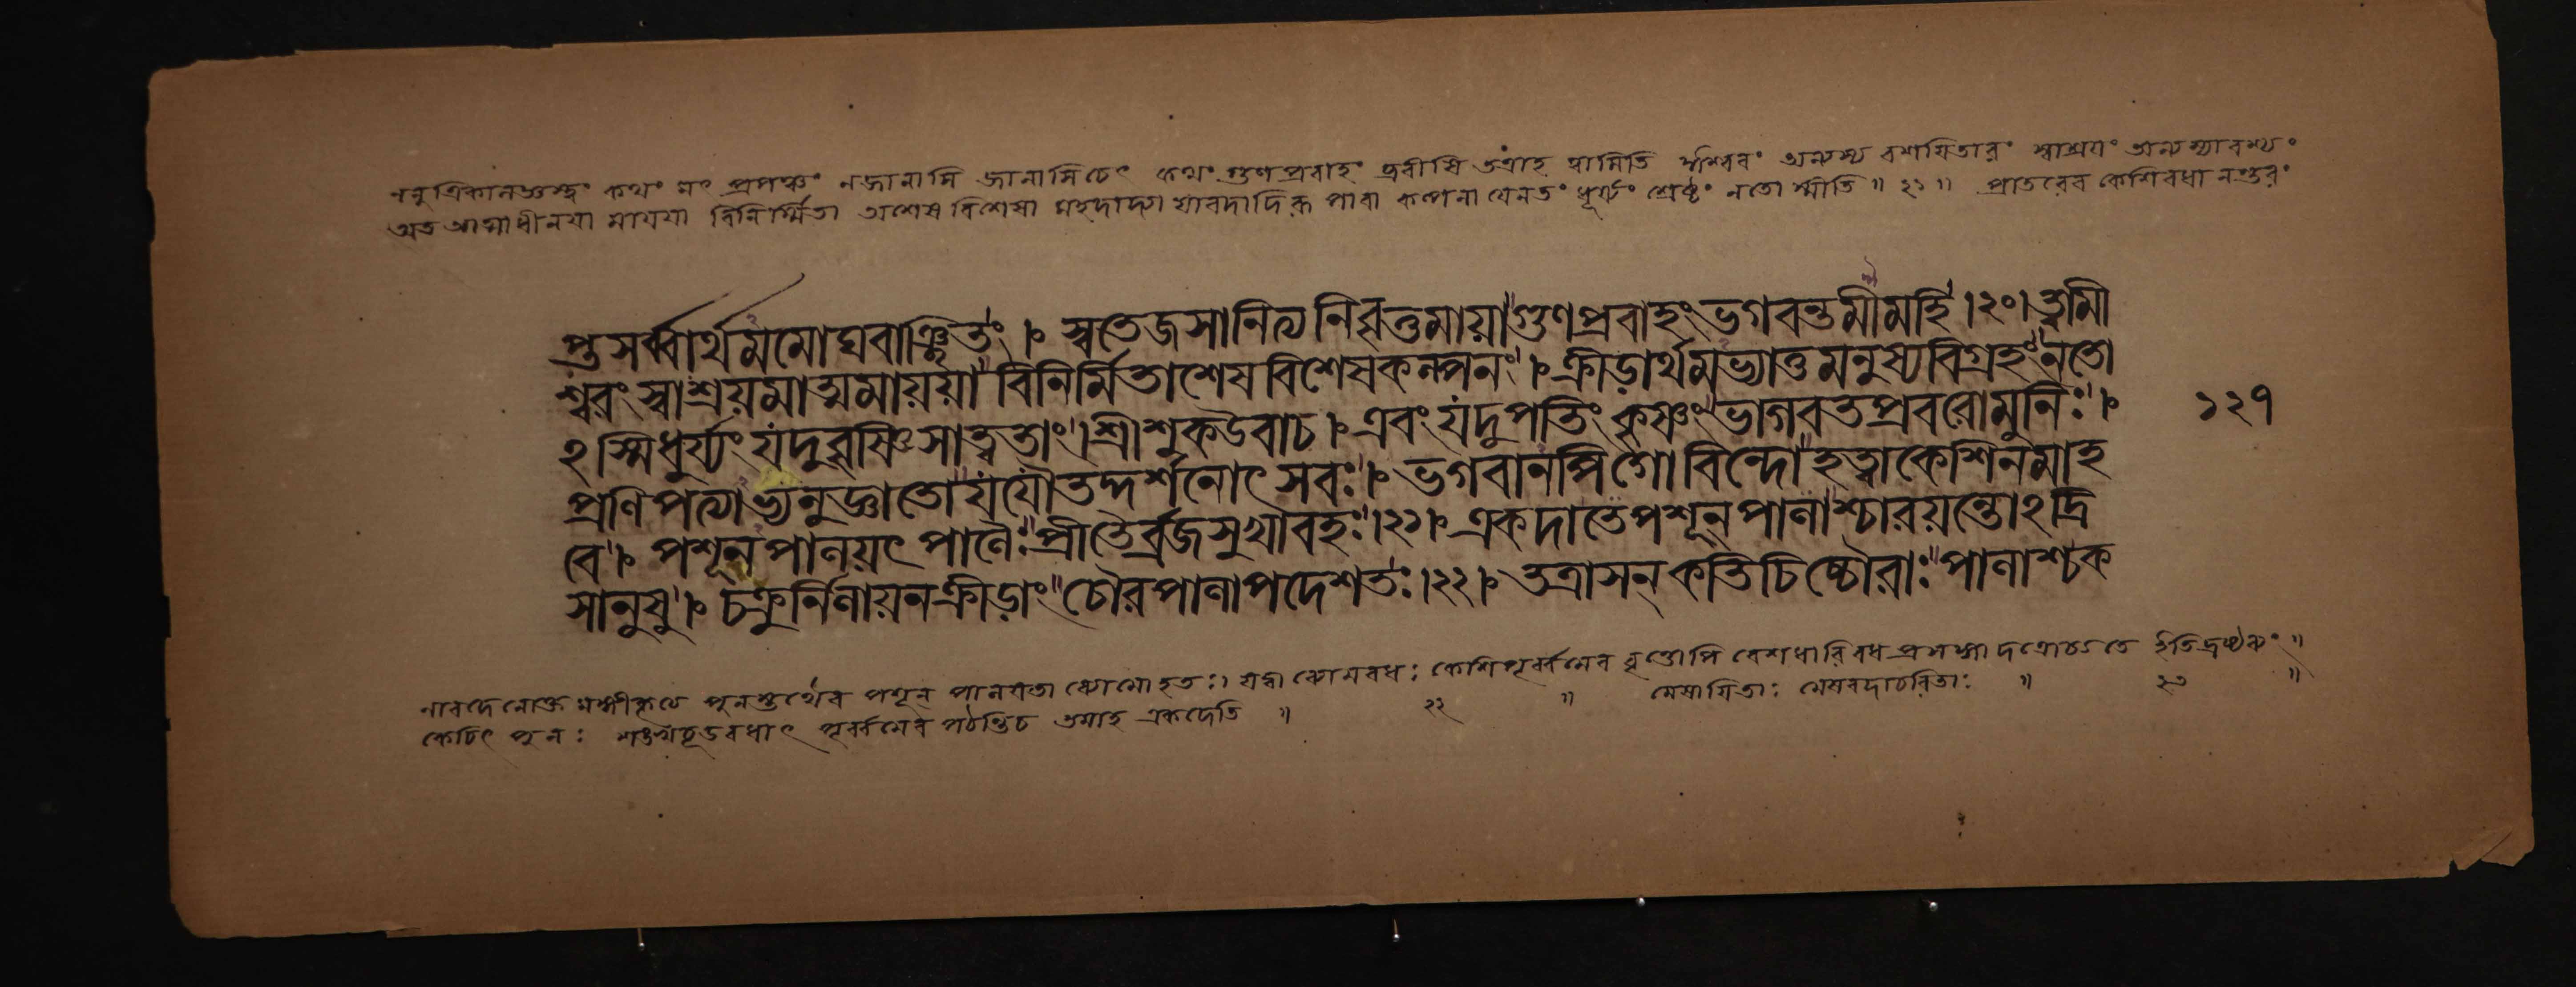 ননু ত্রিকালজ্ঞস্ত্বং কথং মৎ প্রপঞ্চং ন জানাসি জানাসি চেৎ কথং গুণপ্রবাহং ব্রবীষি তত্রাহ ত্বামিতি ঈশ্বরং অন্যস্য বশয়িতারং স্বাশ্রয়ং অন্যস্যাবশ্যং
অত আত্মাধীনয়া মায়য়া বিনির্ম্মিতা অশেষ বিশেষা মহদাদ্যা কল্পনা যেন তং ধূর্য্যং শ্রেষ্ঠং নতোস্মীতি ॥ ২১ ॥ প্রাতরেব কেশিবধানন্তরং
প্তসর্ব্বার্থমমোঘবাঞ্ছিতং । স্বতেজসা নিত্য নিবৃত্তমায়া গুণপ্রবাহং ভগবন্তমীমহি ।২০। ত্বামী
শ্বরং স্বাশ্রয়মাত্মমায়য়া বিনির্মিতাশেষবিশেষকল্পনং । ক্রীড়ার্থমভ্যাত্তমনুষ্যবিগ্রহং নতো
ঽস্মি ধুর্য্যং যদুবৃষ্ণিসাত্ত্বতাং । শ্রীশুকউবাচ । এবং যদুপতিং কৃষ্ণং ভাগবতপ্রবরো মুনিঃ । ১২৭
প্রণিপত্যাভ্যনুজ্ঞাতো যযৌ তদ্দর্শনোৎসবঃ । ভগবানপি গোবিন্দো হত্বা কেশিনমাহ
বে । পশূন পালয়ৎ পালৈঃ প্রীতৈর্ব্রজসুখাবহঃ ।২১। একদা তে পশূন্ পালাশ্চারয়ন্তোঽদ্রি
সানুষু । চক্রুর্নিলায়নক্রীড়াং চৌরপালাপদেশতঃ ।২২। তত্রাসন্ কতিচিচ্চৌরাঃ পালাশ্চ ক
নারদেনোক্ত পুনস্তথৈব পশূন পালয়তা ব্যোমো হতঃ । যদ্বা ব্যোমবধঃ কেশিপূর্ব্বমেব বৃত্তোপি বেশধারিবধপ্রসঙ্গাদত্রোচ্যতে ইতি দ্রষ্টব্যং ॥
কেচিৎ পুনঃ শঙ্খচূড়বধাৎ পূর্ব্বমেব পঠন্তি চ তমাহ একদেতি ॥ ২২ ॥ মেষায়িতাঃ মেষবদাচরিতাঃ ॥ ২৩ ॥